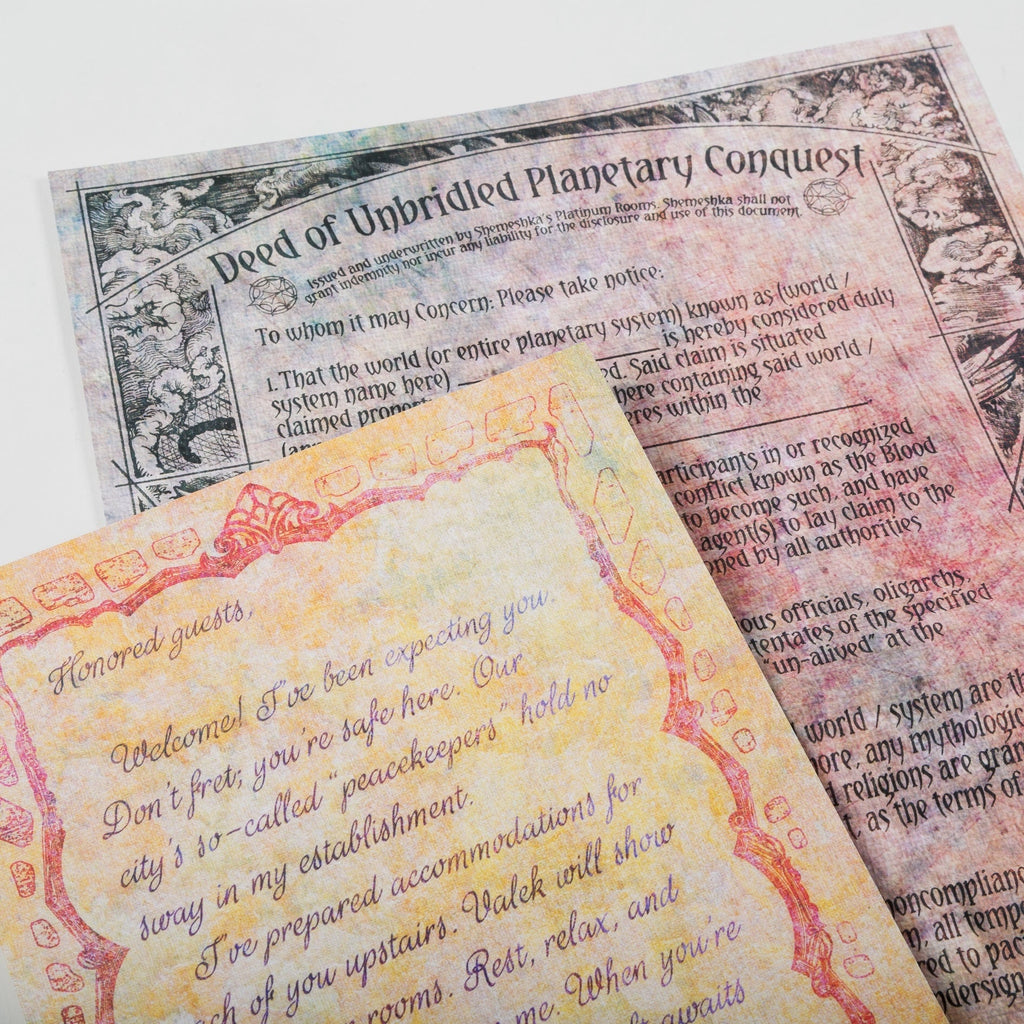 Deed of Unbridled Planetary Conquest
Issued and underwritten by Shemeshka's Platinum Rooms. Shemeshka shall not
grant indemnity nor incur any liability for the disclosure and use of this document.
To whom it may Concern: Please take notice:
1. That the world (or entire planetary system) known as (world /
system name here) is hereby considered duly
claimed Said claim is situated
here containing said world /
within the
participants in or recognized
conflict known as the Blood
to become such, and have
agent(s) to lay claim to the
by all authorities
officials, oligarchs,
of the specified
"un-alived" at the
world / system are
any mythologic
religions are
as the terms of
all
to
Honored guests,
Welcome! I've been expecting you.
Don't fret; you're safe here. Our
city's so-called "peacekeepers" hold no
sway in my establishment.
I've prepared accommodations for
of you upstairs. Valek will show
rooms. Rest, relax, and
me. When you're
awaits